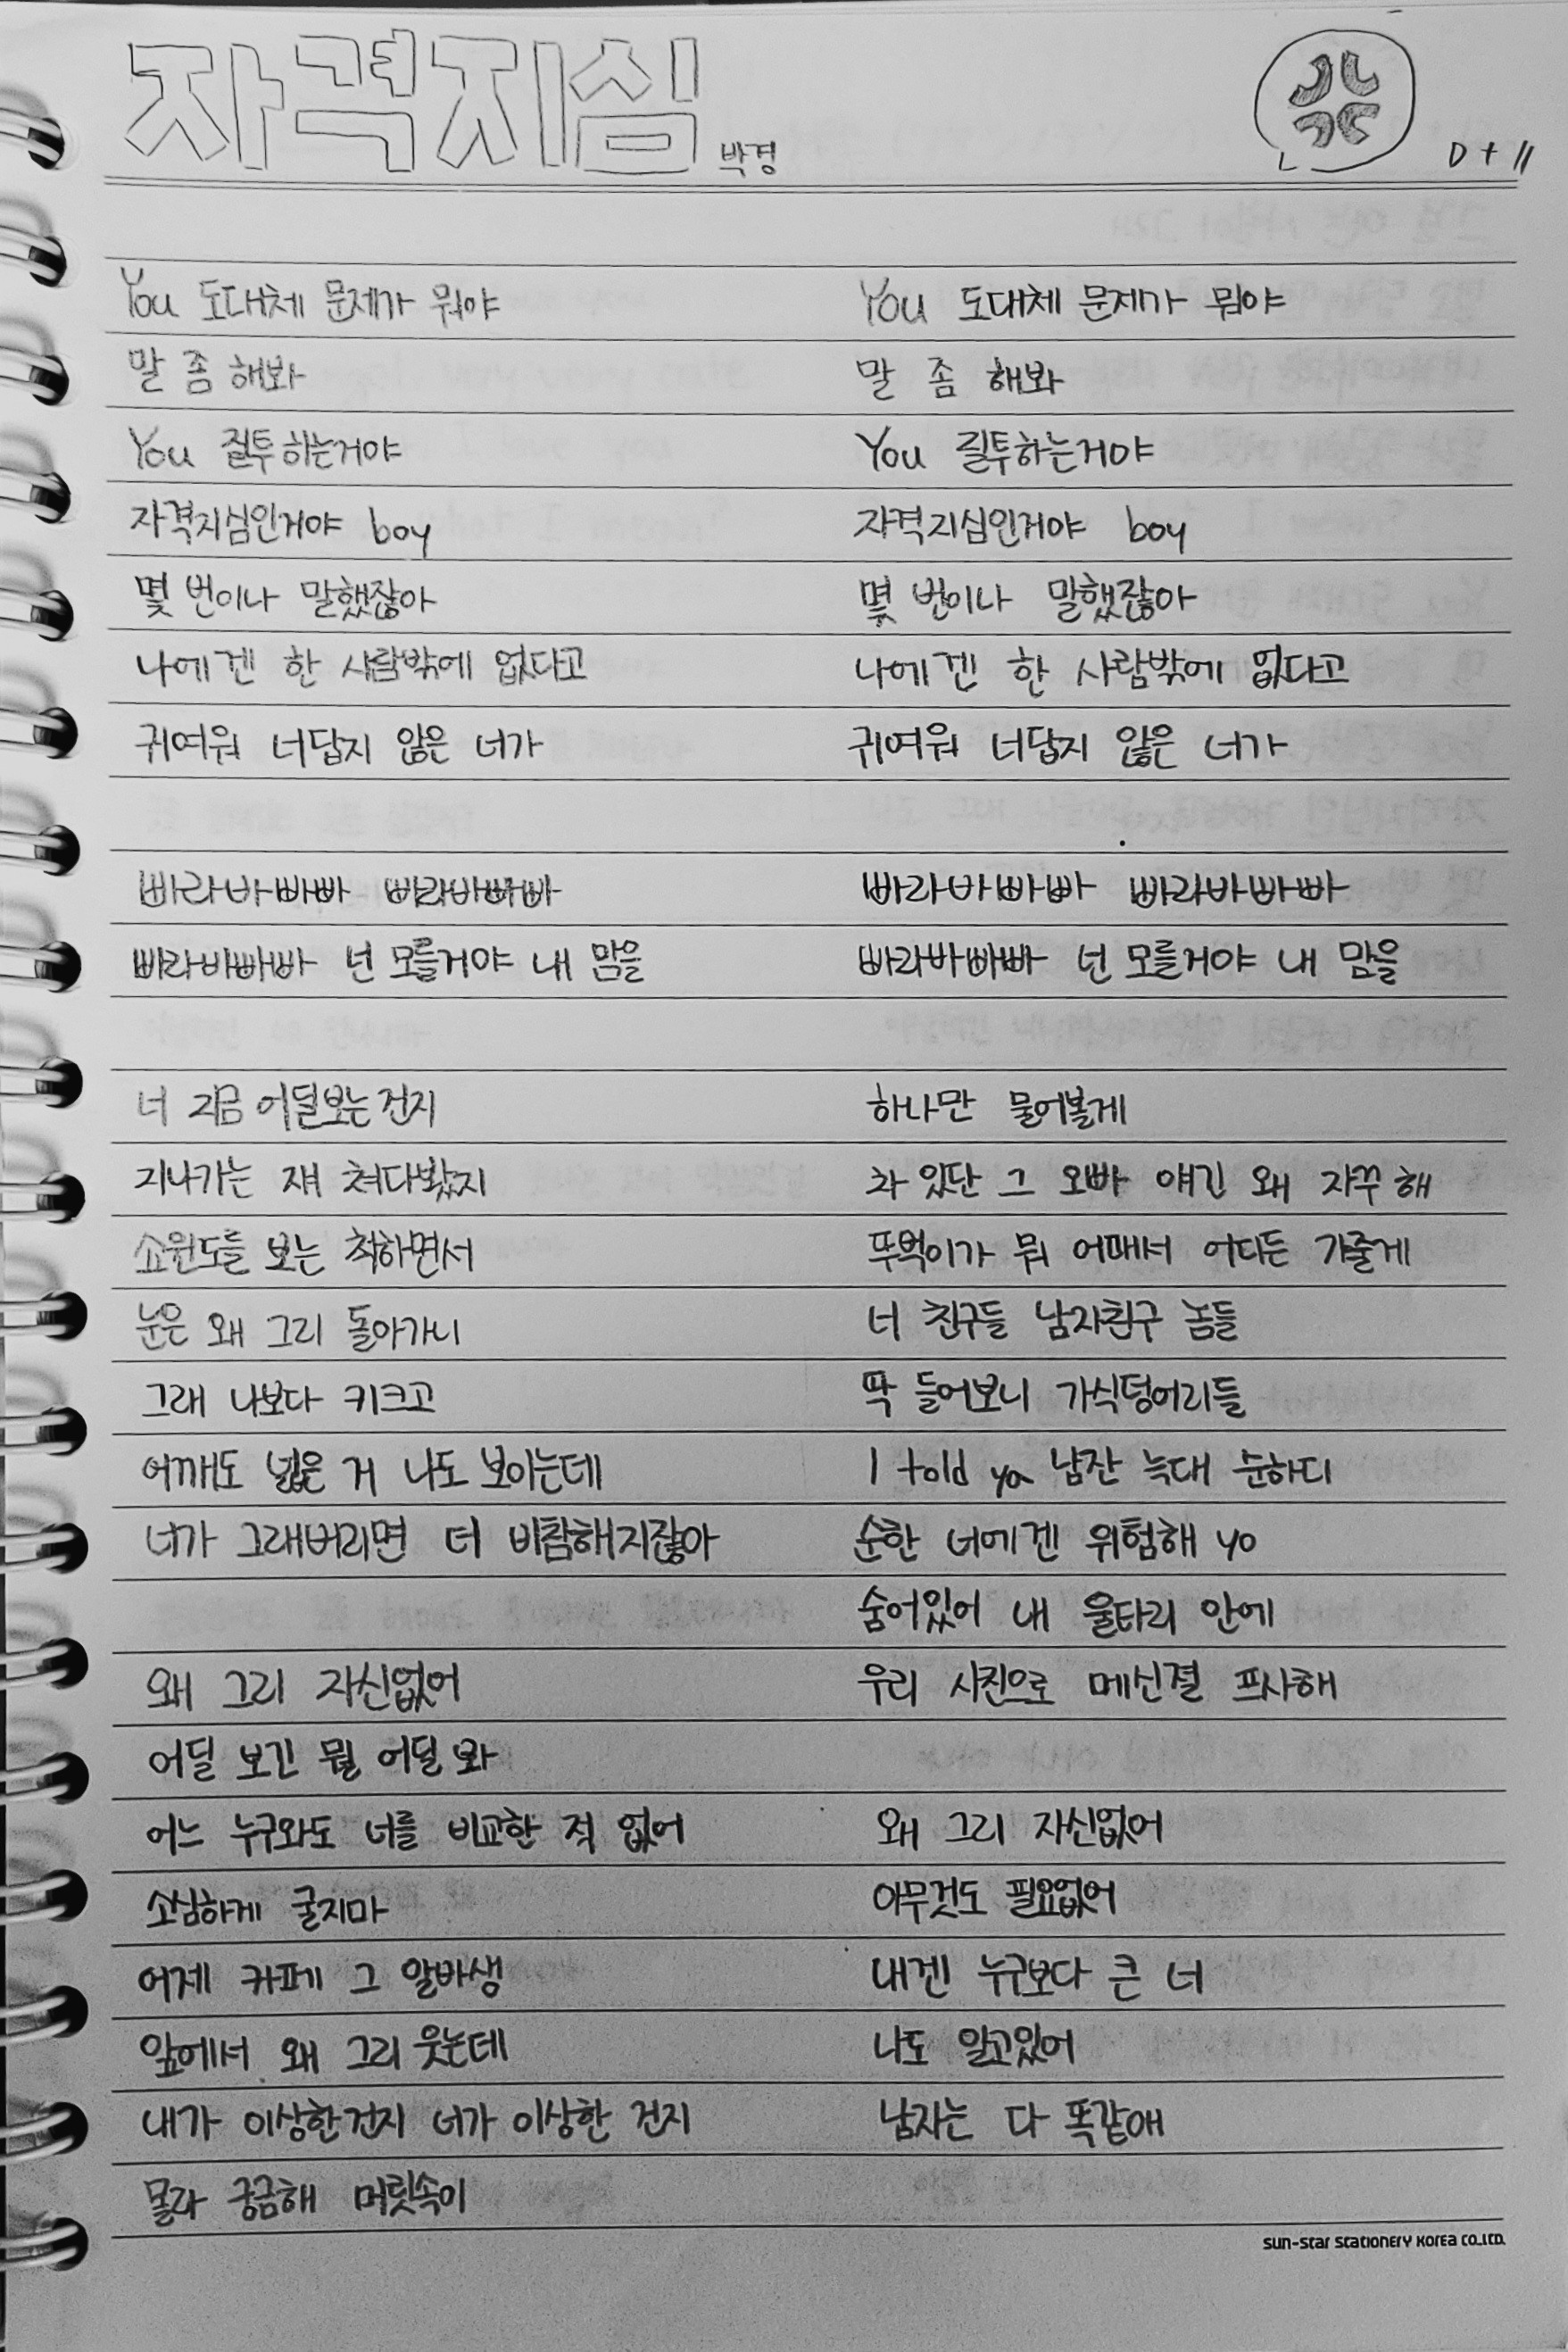 자격지심
박경
D+11
You 도대체 문제가 뭐야
말 좀 해봐
You 질투하는거야
자격지심인거야 boy
몇 번이나 말했잖아
나에겐 한 사람밖에 없다고
귀여워 너답지 않은 너가
빠라바빠빠 빠라바빠빠
빠라바빠빠 넌 모를거야 내 맘을
너 지금 어딜보는건지
지나가는 쟤 쳐다봤지
쇼윈도를 보는 척하면서
눈은 왜 그리 돌아가니
그래 나보다 키크고
어깨도 넓은 거 나도 보이는데
너가 그래버리면 더 비참해지잖아
왜 그리 자신없어
어딜 보긴 뭘 어딜 봐
어느 누구와도 너를 비교한 적 없어
소심하게 굴지마
어제 카페 그 알바생
앞에서 왜 그리 웃는데
내가 이상한건지 너가 이상한 건지
몰라 궁금해 머릿속이
You 도대체 문제가 뭐야
말 좀 해봐
You 질투하는거야
자격지심인거야 boy
몇 번이나 말했잖아
나에겐 한 사람밖에 없다고
귀여워 너답지 않은 너가
빠라바빠빠 빠라바빠빠
빠라바빠빠 넌 모를거야 내 맘을
하나만 물어볼게
차 있단 그 오빠 얘긴 왜 자꾸 해
뚜벅이가 뭐 어때서 어디든 가줄게
너 친구들 남자친구 놈들
딱 들어보니 가식덩어리들
I told ya 남잔 늑대 순하디
순한 너에겐 위험해 yo
숨어있어 내 울타리 안에
우리 사진으로 메신절 프사해
왜 그리 자신없어
아무것도 필요없어
내겐 누구보다 큰 너
나도 알고있어
남자는 다 똑같애
SUN-STAR STATIONERY KOREA CO.,LTD.